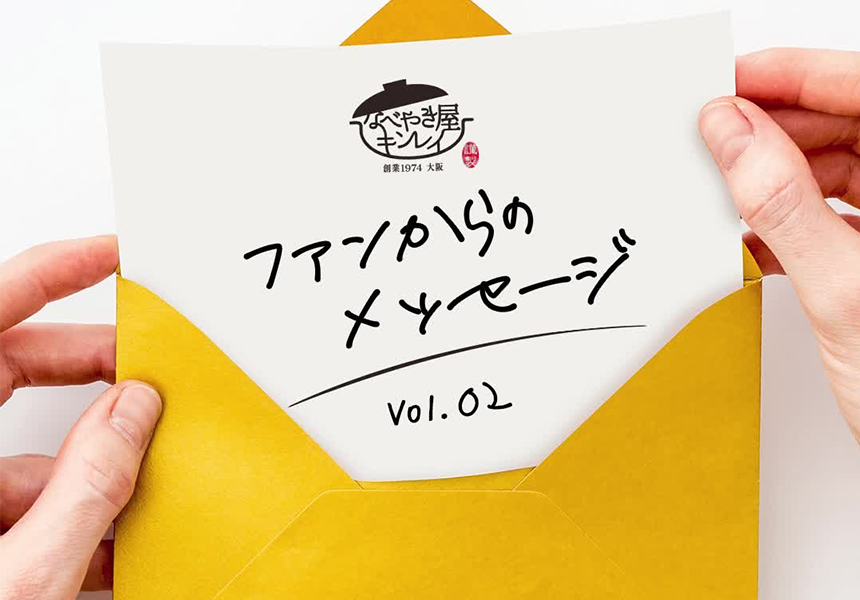 なべやき屋
キンレイ
謹製
創業1974 大阪
ファンからの
メッセージ
vol.02